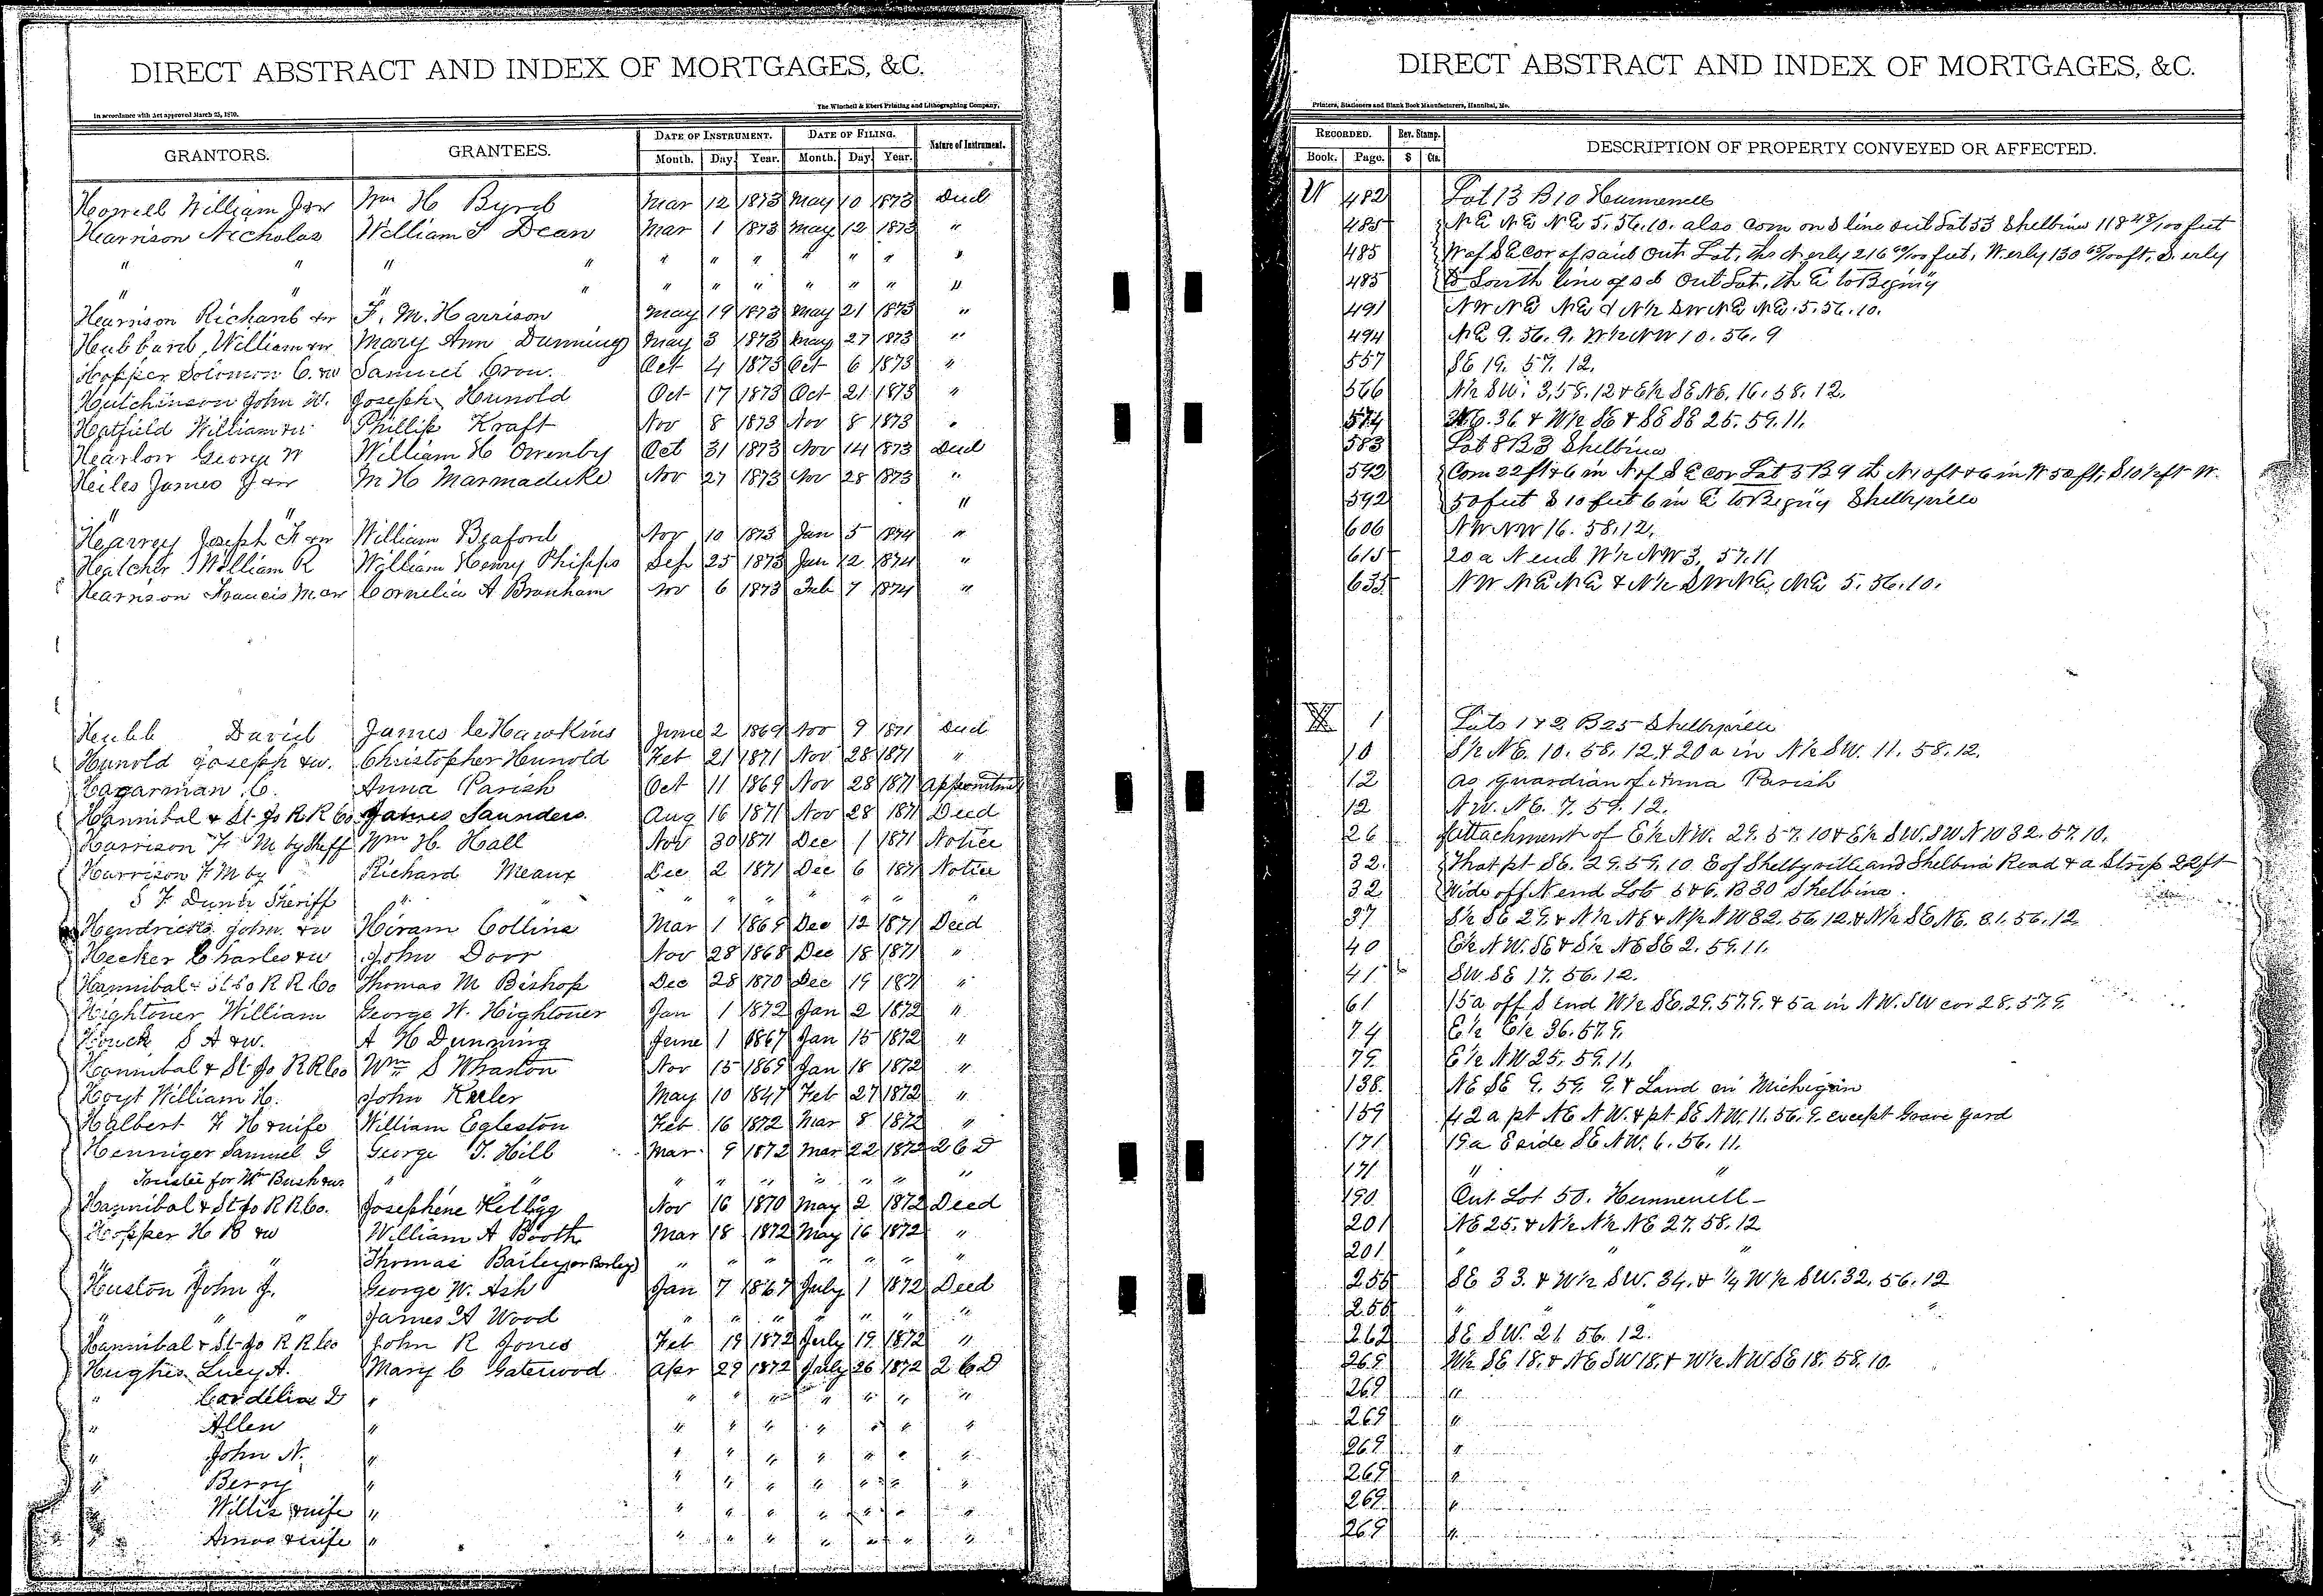 DIRECT ABSTRACT AND INDEX OF MORTGAGES, &C.
In accordance with Act approved March 25, 1870.
The Winchell & Ebert Printing and Lithographing Company,
GRANTORS. GRANTEES. DATE OF INSTRUMENT. DATE OF FILING. Nature of Instrument.
Month. Day. Year. Month. Day. Year.
Howell William J &w Wm H Byrd Mar 12 1873 May 10 1873 Deed
Harrison Nicholas William S Dean Mar 1 1873 May 12 1873 "
" " " " " " " " " " "
" " " " " " " " " " "
Harrison Richard &w F. M. Harrison May 19 1873 May 21 1873 "
Hubbard William &w Mary Ann Dunning May 3 1873 May 27 1873 "
Hopper Solomon C. &w Samuel Crow. Oct 4 1873 Oct 6 1873 "
Hutchinson John W. Joseph Hunold Oct 17 1873 Oct 21 1873 "
Hatfield William &w Phillip Kraft Nov 8 1873 Nov 8 1873 "
Harlow George W William H Owenby Oct 31 1873 Nov 14 1873 Deed
Hiles James J &w M H Marmaduke Nov 27 1873 Nov 28 1873 "
" " "
Harvey Joseph F &w William Beaford Nov 10 1873 Jan 5 1874 "
Hatcher William R William Henry Phipps Sep 25 1873 Jan 12 1874 "
Harrison Francis M &w Cornelia A Branham Nov 6 1873 Feb 7 1874 "
Hubb David James C Hawkins June 2 1869 Nov 9 1871 Deed
Hunold Joseph &w. Christopher Hunold Feb 21 1871 Nov 28 1871 "
Hagarman C. Anna Parish Oct 11 1869 Nov 28 1871 Appointment
Hannibal & St Jo R R Co James Saunders. Aug 16 1871 Nov 28 1871 Deed
Harrison F M by Sheff Wm H. Hall Nov 30 1871 Dec 1 1871 Notice
Harrison F M by Richard Meaux Dec 2 1871 Dec 6 1871 Notice
S F Dunn Sheriff " " " " " " " "
Hendricks John. &w Hiram Collins Mar 1 1869 Dec 12 1871 Deed
Hecker Charles &w John Door Nov 28 1868 Dec 18 1871 "
Hannibal & St Jo R R Co Thomas M Bishop Dec 28 1870 Dec 19 1871 "
Hightower William George W. Hightower Jan 1 1872 Jan 2 1872 "
Houck S A &w. A H Dunning June 1 1867 Jan 15 1872 "
Hannibal & St Jo R R Co Wm S Wharton Nov 15 1869 Jan 18 1872 "
Hoyt William H. John Keeler May 10 1847 Feb 27 1872 "
Halbert F H &wife William Egleston Feb 16 1872 Mar 8 1872 "
Henniger Samuel G George T. Hill Mar 9 1872 Mar 22 1872 2 C D
Trustee for Wm Bush &w " " " " " " " " "
Hannibal & St Jo R R Co. Josephine Kellogg Nov 16 1870 May 2 1872 Deed
Hopper H B &w William A Booth Mar 18 1872 May 16 1872 "
" " Thomas Bailey (or Borley) " " " " " " "
Huston John J. George W. Ash Jan 7 1867 July 1 1872 Deed
" " " James A Wood " " " " " " "
Hannibal & St Jo R R Co John R Jones Feb 19 1872 July 19 1872 "
Hughes Lucy A. Mary C Gatewood Apr 29 1872 July 26 1872 2 C D
" Cordelia D " " " " " " " "
" Allen " " " " " " " "
" John N. " " " " " " " "
" Berry " " " " " " " "
" Willis &wife " " " " " " " "
" Amos &wife " " " " " " " "
DIRECT ABSTRACT AND INDEX OF MORTGAGES, &C.
Printers, Stationers and Blank Book Manufacturers, Hannibal, Mo.
RECORDED. Rev. Stamp. DESCRIPTION OF PROPERTY CONVEYED OR AFFECTED.
Book. Page. $ Cts.
W 482 Lot 13 B 10 Hunnewell
485 NE NE NE 5. 56. 10. also com on S line out Lot 53 Shelbina 118 48/100 feet
485 W of SE cor of said Out Lot, th N erly 216 60/100 feet, W erly 130 65/100 ft. S. erly
485 to South line of sd Out Lot, th E to Beginig
491 NW NE NE & N½ SW NE NE. 5. 56. 10.
494 NE 9. 56. 9. W½ NW 10. 56. 9
557 SE 19. 57. 12.
566 N½ SW. 3, 58. 12 & E½ SE NE. 16. 58. 12.
574 NE. 36 & W½ SE & SE SE 25. 59. 11.
583 Lot 8 B 3 Shelbina
592 Com 22 ft & 6 in N of SE cor Lot 5 B 9 th N 10 ft & 6 in W 50 ft, S 10½ ft W.
592 50 feet S 10 feet 6 in E to Beginig Shelbyville
606 NW NW 16. 58. 12.
615 20 a N end W½ NW 3, 57. 11
635 NW NE NE & N½ SW NE, NE 5. 56. 10.
X 1 Lots 1 & 2 B 25 Shelbyville
10 S½ NE. 10. 58. 12. & 20 a in N½ SW. 11. 58. 12.
12 as guardian of Anna Parish
12 NW. NE. 7. 59. 12.
26 Attachment of E½ NW. 29. 57. 10 & E½ SW. SW N10 32. 57. 10.
32. That pt SE. 29. 59. 10 E of Shelbyville and Shelbina Road & a Strip 22 ft
32 Wide off N end Lots 5 & 6. B 30 Shelbina.
37 S½ SE 29. & N½ NE & N½ NW 32. 56. 12. & N½ SE NE. 31. 56. 12
40 E½ NW. SE & S½ NE SE 2. 59. 11.
41 SW. SE 17. 56. 12.
61 15 a off S End W½ SE. 29. 57. 9. & 5 a in NW. SW cor 28. 57. 9.
74 E½ E½ 36. 57. 9.
79. E½ NW 25. 59. 11.
138. NE SE 9. 59. 9. & Land in Michigan
159 42 a pt NE NW. & pt SE NW. 11. 56. 9. except Grave yard
171 19 a E side SE NW. 6. 56. 11.
171 " "
190 Out Lot 50. Hunnewell
201 NE 25. & N½ N½ NE 27. 58. 12
201 " " "
255 SE 33. & W½ SW. 34. & ¼ W½ SW. 32. 56. 12
255 " " " "
262 SE SW. 21 56. 12.
269 W½ SE 18. & NE SW 18. & W½ NW SE 18. 58. 10.
269 "
269 "
269 "
269 "
269 "
269 "